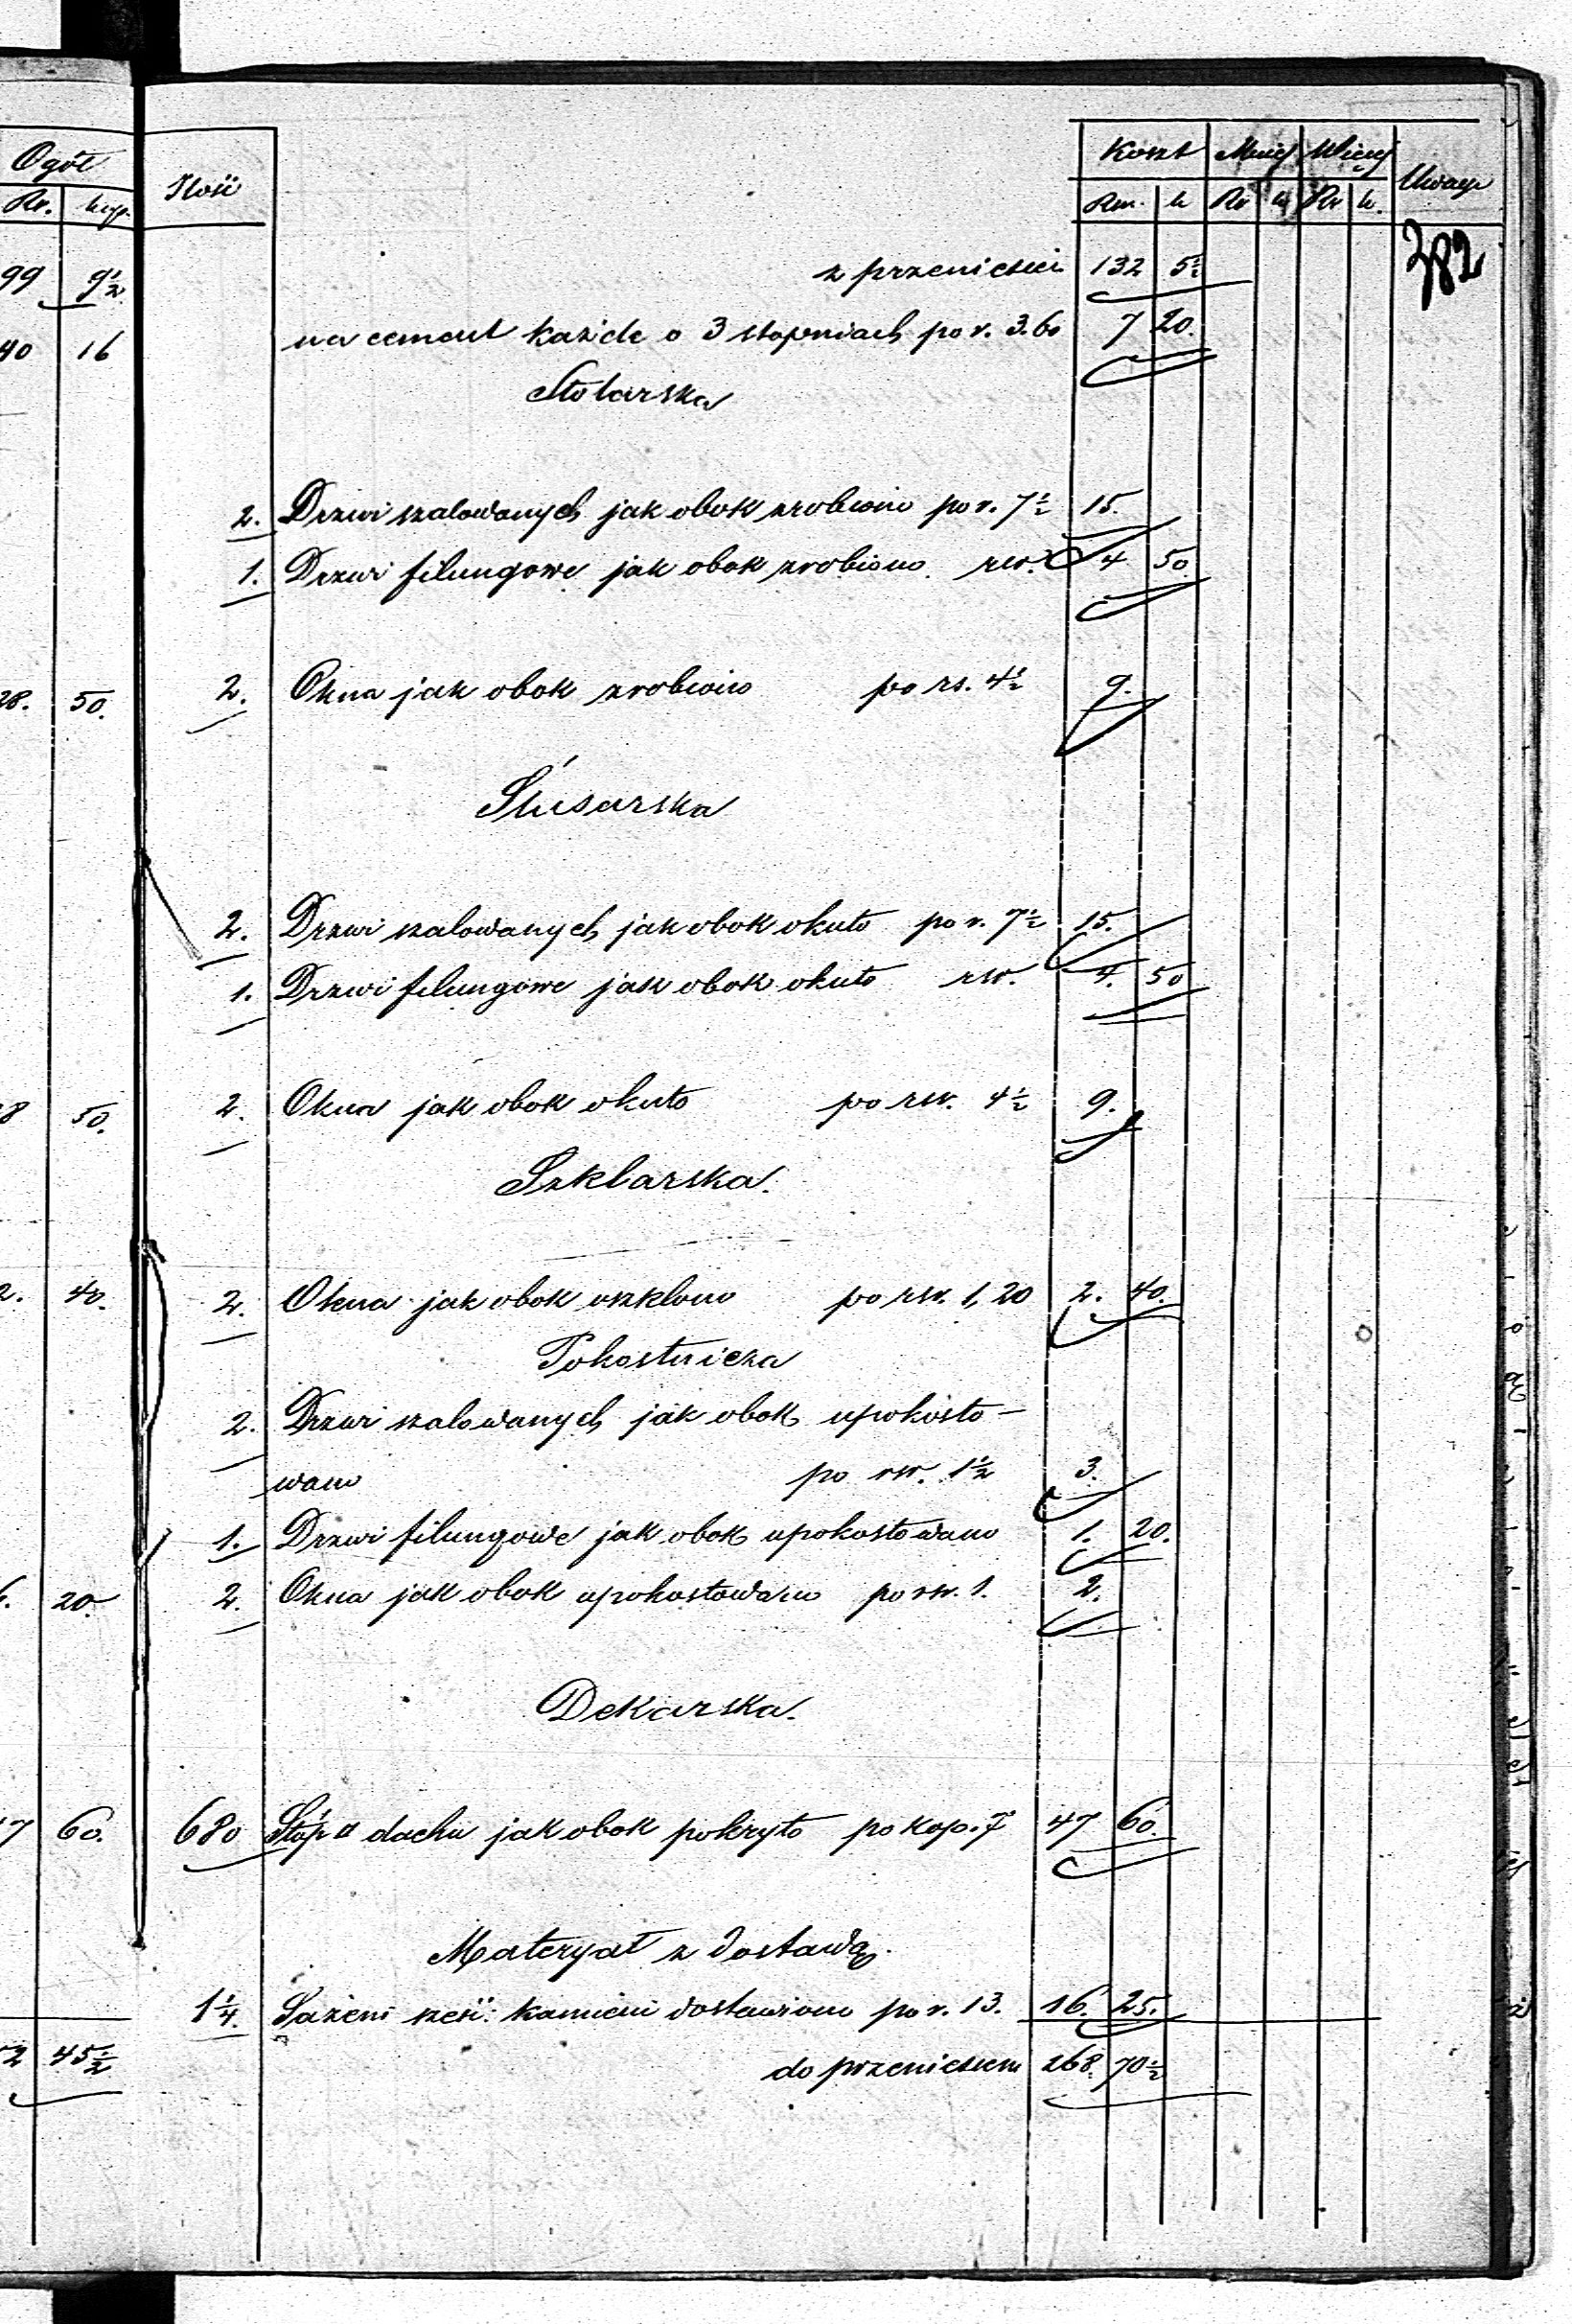 Ogół
Rr. kop.
99 9½
40 16
28. 50.
8 50.
2. 40.
6. 20.
47 60.
52 45½
Ilość Koszt Mniej Więcej Uwagi
Rsr. k Rr k Rr k.
382
z przeniesien 132 5½
na cement każde o 3 stopniach po r. 3.60 7 20.
Stolarska
2. Drzwi szalowanych jak obok zrobiono po r. 7½ 15.
1. Drzwi filungowe jak obok zrobiono rsr. 4 50
2. Okna jak obok zrobiono po rs. 4½ 9.
Ślusarska
2. Drzwi szalowanych jak obok okuto po r. 7½ 15.
1. Drzwi filungowe jak obok okuto rsr. 4. 50
2. Okna jak obok okuto po rsr. 4½ 9.
Szklarska.
2. Okna jak obok oszklono po rsr. 1,20 2. 40.
Pokostnicza
2. Drzwi szalowanych jak obok upokosto-
wano po rsr. 1½ 3.
1. Drzwi filungowe jak obok upokostowano 1. 20.
2. Okna jak obok upokostowano po rsr. 1. 2.
Dekarska.
680 Stóp □ dachu jak obok pokryto po kop. 7 47 60.
Materyał z dostawą.
1¼. Sążeni sześć: kamieni dostawiono po r. 13. 16. 25.
do przeniesien 268. 70½